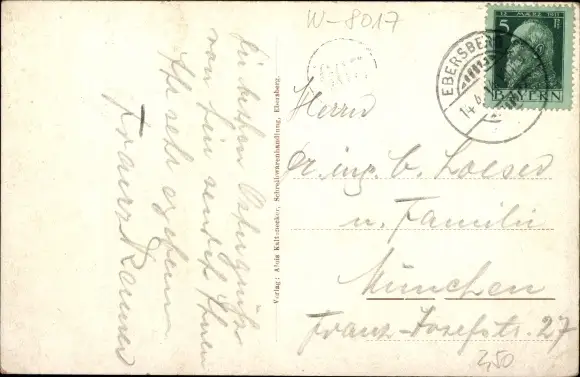 W-8017
Die besten Ostergrüße
von hier sendet Ihnen
Ihr sehr ergebener
Franz
Verlag: Alois Kaltenecker, Schreibwarenhandlung, Ebersberg.
12. MÄRZ 1911
5 Pf
BAYERN
EBERSBERG
14
Herrn
Dr. ing. b. Loeser
u. Familie
München
Franz-Josefstr. 27
2,50